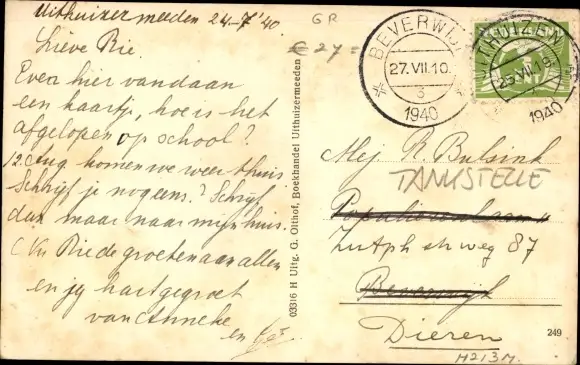 Uithuizermeeden 24-7-'40
GR
Lieve Rie
€ 27=
Even hier vandaan
een kaartje, hoe is het
afgelopen op school?
12 Aug. komen we weer thuis
Schrijf je nog eens? Schrijf
dan maar naar mijn huis.
Nu Rie de groeten aan allen
en jij hartgegroet
van Anneke
en
03316 H Uitg. G. Olthof, Boekhandel Uithuizermeeden
BEVERWIJK
27.VII.10.
3
1940
UITHUIZEN
25.VII.16
1940
Mej R. Bulsink
TANKSTELLE
Populierenlaan
Zutphstrweg 87
Beverwijk
Dieren
249
M213M.